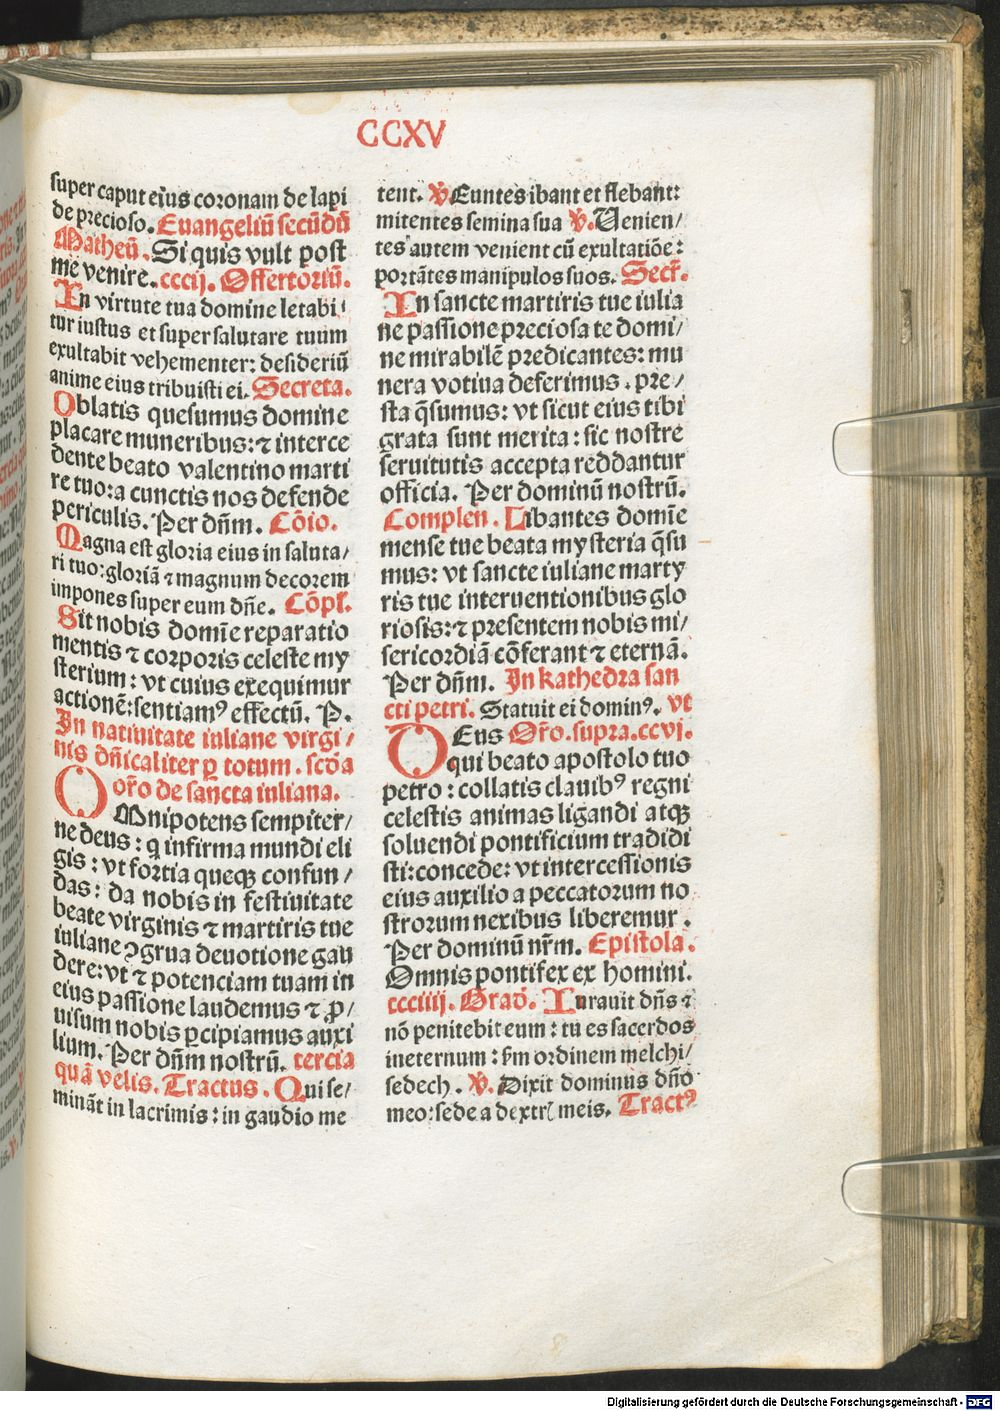 CCXV
super caput eius coronam de lapi
de precioso. Euangeliū secūdū
Matheū. Si quis vult post
me venire. cccij. Offertoriū.
In virtute tua domine letabi
tur iustus et super salutare tuum
exultabit vehementer: desideriū
anime eius tribuisti ei. Secreta.
Oblatis quesumus domine
placare muneribus: ⁊ interce
dente beato valentino marti
re tuo: a cunctis nos defende
periculis. Per dñm. Cōio.
Magna est gloria eius in saluta/
ri tuo: gloriā ⁊ magnum decorem
impones super eum dñe. Cōpl.
Sit nobis domīe reparatio
mentis ⁊ corporis celeste my
sterium: vt cuius exequimur
actionē: sentiamꝰ effectū. P.
In natiuitate iuliane virgi/
nis dñicaliter ꝑ totum. scōa
or̄o de sancta iuliana.
OMnipotens sempiter/
ne deus: q infirma mundi eli
gis: vt fortia queqꝫ confun/
das: da nobis in festiuitate
beate virginis ⁊ martiris tue
iuliane ꝯgrua deuotione gau
dere: vt ⁊ potenciam tuam in
eius passione laudemus ⁊ ꝓ/
uisum nobis ꝑcipiamus auxi
lium. Per dñm nostrū. tercia
quā velis. Tractus. Qui se/
mināt in lacrimis: in gaudio me
tent. ℣. Euntes ibant et flebant:
mitentes semina sua ℣. Uenien/
tes autem venient cū exultatiōe:
portātes manipulos suos. Secr̄.
In sancte martiris tue iulia
ne passione preciosa te domi/
ne mirabilē predicantes: mu
nera votiua deferimus. pre/
sta q̄sumus: vt sicut eius tibi
grata sunt merita: sic nostre
seruitutis accepta reddantur
officia. Per dominū nostrū.
Complen. Libantes domīe
mense tue beata mysteria q̄su
mus: vt sancte iuliane marty
ris tue interuentionibus glo
riosis: ⁊ presentem nobis mi/
sericordiā cōferant ⁊ eternā.
Per dñm. In kathedra san
cti petri. Statuit ei dominꝰ. vt
DEus Or̄o. supra. ccvj.
qui beato apostolo tuo
petro: collatis clauibꝰ regni
celestis animas ligandi atqꝫ
soluendi pontificium tradidi
sti: concede: vt intercessionis
eius auxilio a peccatorum no
strorum nexibus liberemur.
Per dominū nr̄m. Epistola.
Omnis pontifex ex homini.
ccciiij. Grad̄. Iurauit dñs ⁊
nō penitebit eum: tu es sacerdos
ineternum: ẜm ordinem melchi/
sedech. ℣. Dixit dominus dño
meo: sede a dextrꝭ meis. Tractꝰ
Digitalisierung gefördert durch die Deutsche Forschungsgemeinschaft - DFG